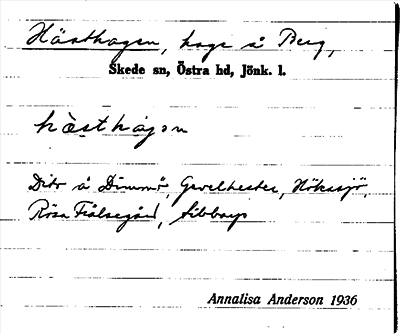 Hästhagen, hage å Berg,
Skede sn, Östra hd, Jönk. l.
hästhagen
Dito å Dimmö, Gavelhester, Hökasjö,
Rösa Frälsegård, Sibbarp
Annalisa Anderson 1936